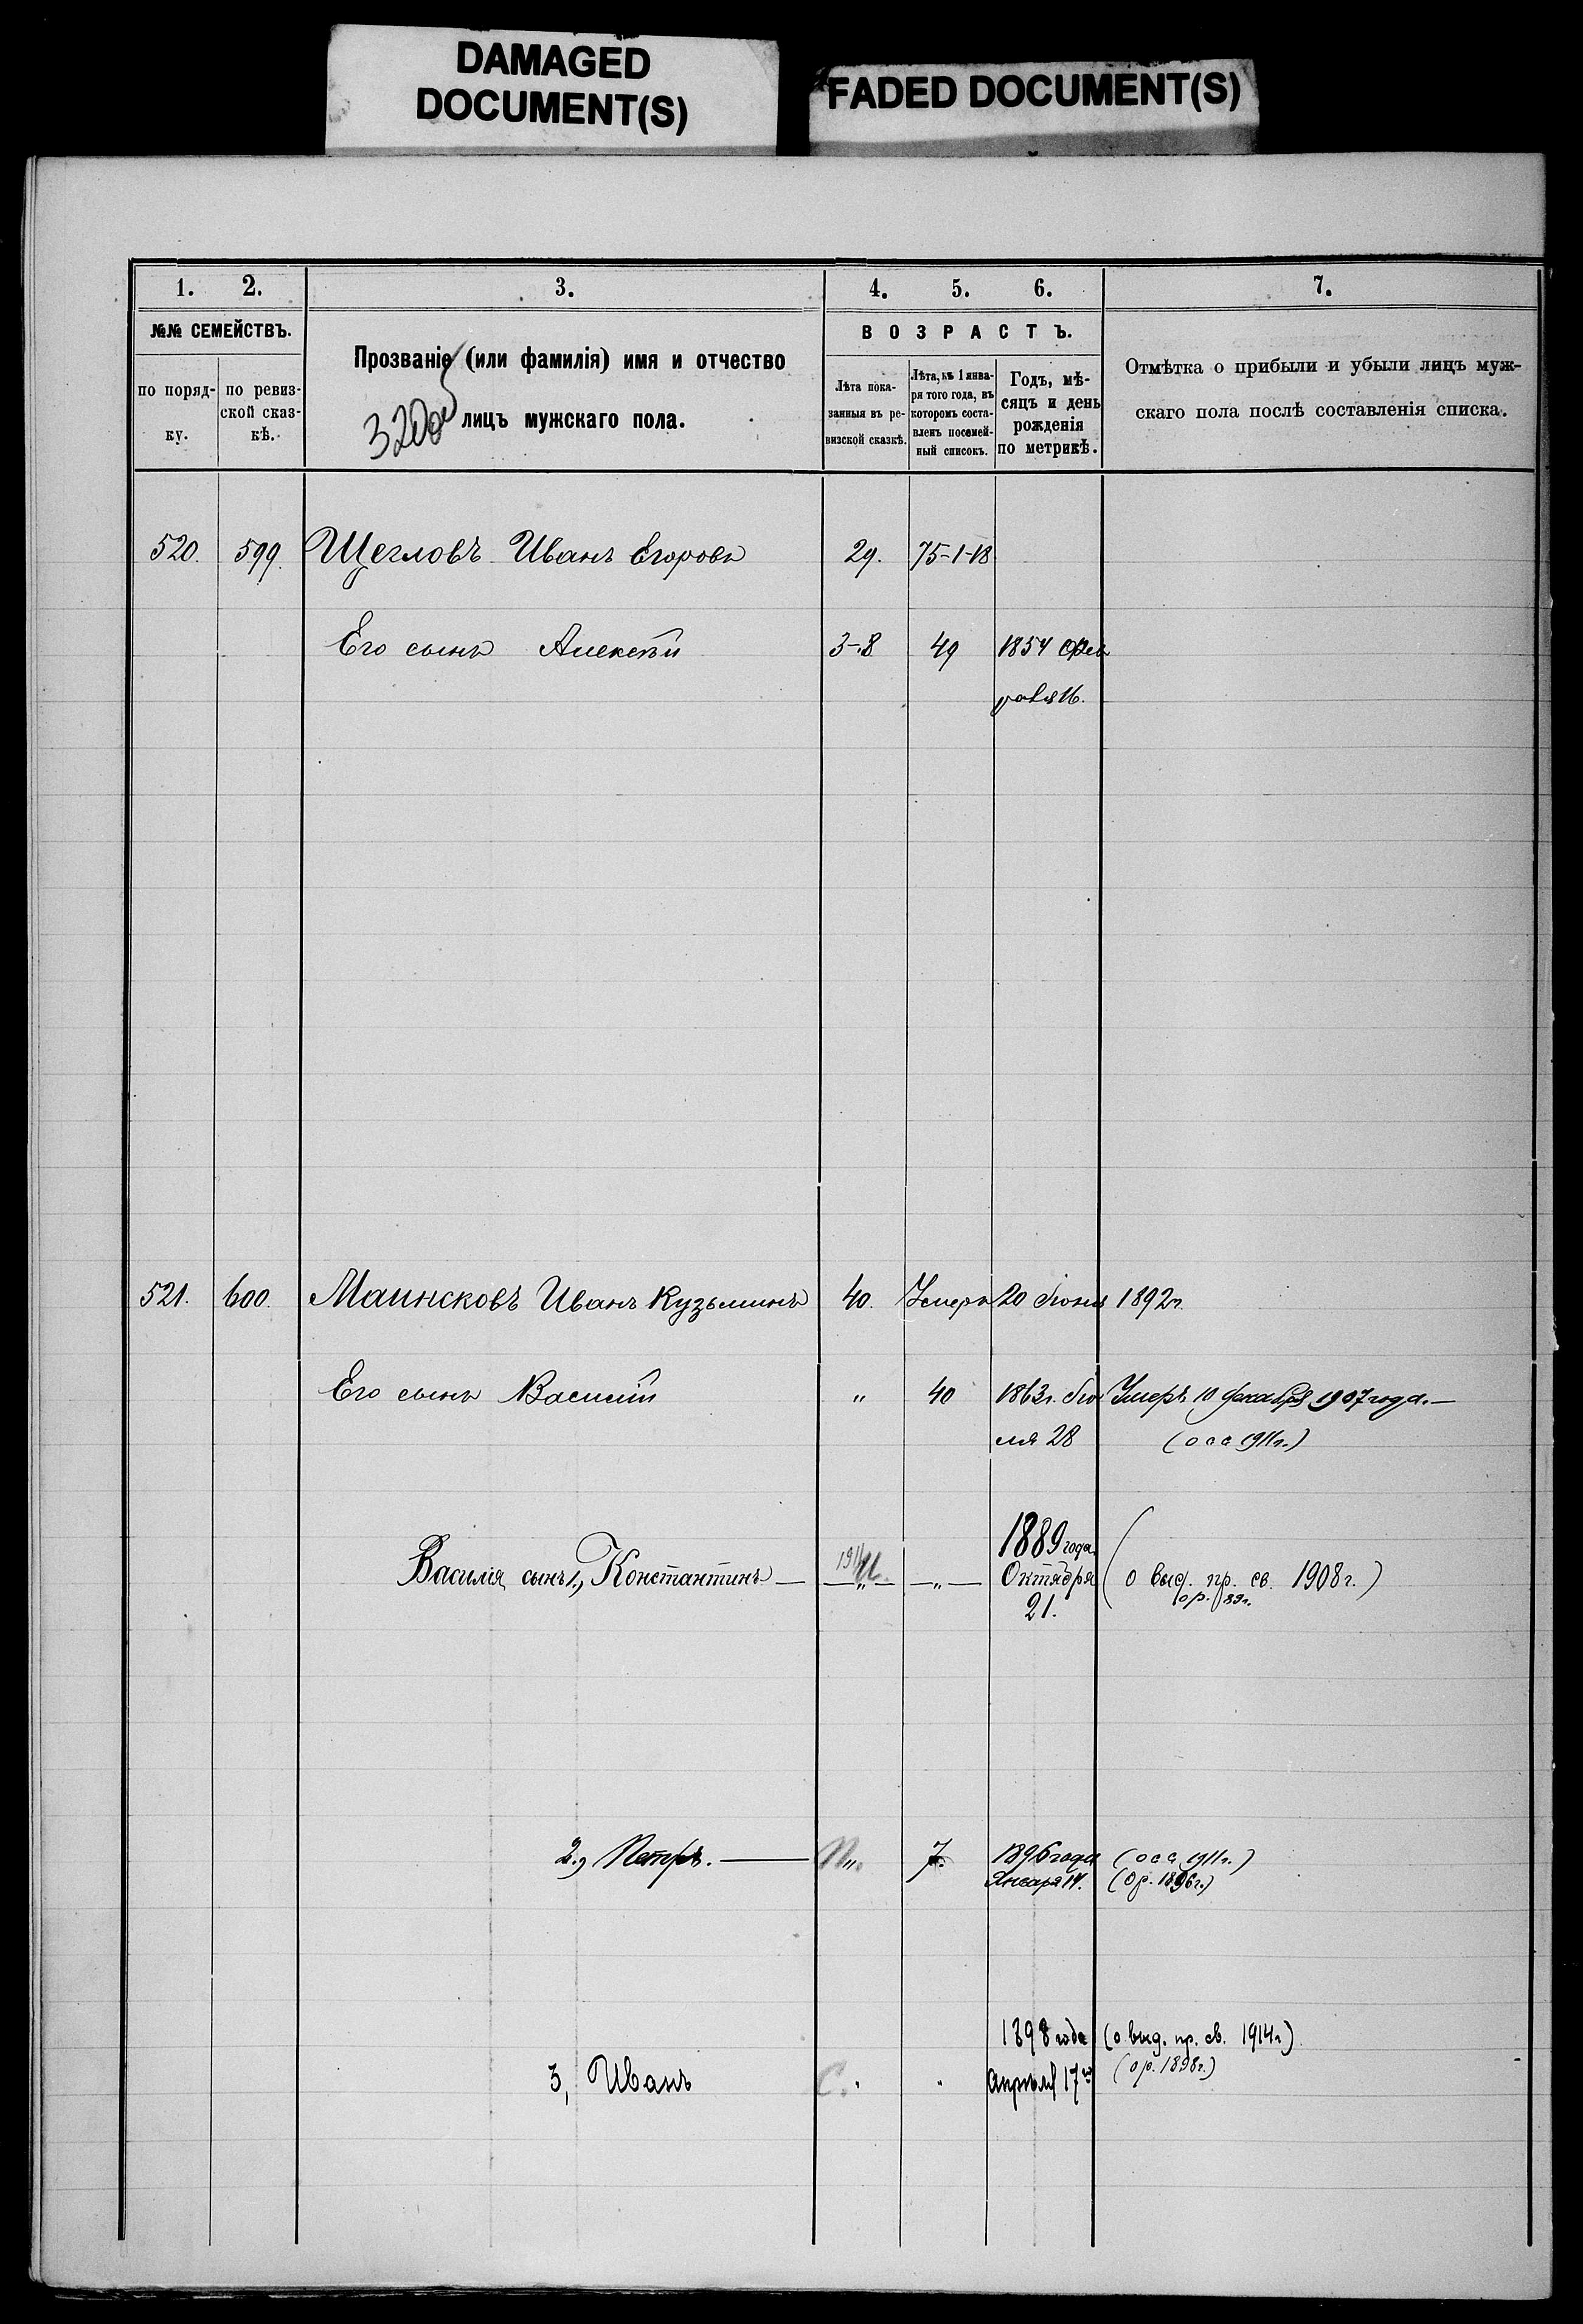 DAMAGED
DOCUMENT(S)
FADED DOCUMENT(S)
1. 2. 3. 4. 5. 6. 7.
№№ СЕМЕЙСТВЪ.
по поряд-
ку.
по ревиз-
ской сказ-
кѣ.
Прозваніе (или фамилія) имя и отчество
лицъ мужскаго пола.
ВОЗРАСТЪ.
Лѣта пока-
занныя въ ре-
визской сказкѣ.
Лѣта, къ 1 янва-
ря того года, въ
которомъ соста-
вленъ посемей-
ный списокъ.
Годъ, мѣ-
сяцъ и день
рожденія
по метрикѣ.
Отмѣтка о прибыли и убыли лицъ муж-
скаго пола послѣ составленія списка.
520. 599. Щегловъ Иванъ Егоровъ 29. 75-1-18
Его сынъ Алексѣй 3-8 49 1854 Фев
раля 16.
521. 600. Маинсковъ Иванъ Кузьминъ 40. Умеръ 20 Іюня 1892г.
Его сынъ Василій " 40 1863г. Ію Умеръ 10 декабря 1907 года.—
ля 28 (о с с 1911г.)
1889 года
Василія сынъ 1, Константинъ — 1911 — " — — " — Октября ( о выд. пр. св. 1908 г.)
21. ор. 89г.
2, Петръ. — " 7. 1896 года (о с с 1911г.)
Января 14. (ор. 1896г.)
1898 года (о выд. пр. св. 1914г.)
3, Иванъ С. " " Апрѣля 17го (ор. 1898г.)